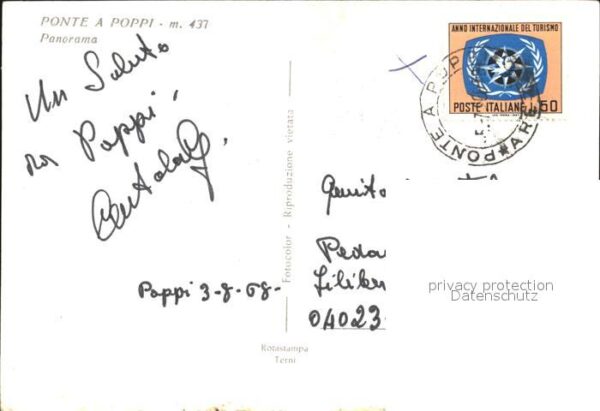 PONTE A POPPI - m. 437
Panorama
Un Saluto
da Poppi,
Poppi 3-8-68-
Fotocolor - Riproduzione vietata
Rotastampa
Terni
ANNO INTERNAZIONALE DEL TURISMO
POSTE ITALIANE L. 50
PONTE A POPPI * AR
04023
privacy protection
Datenschutz